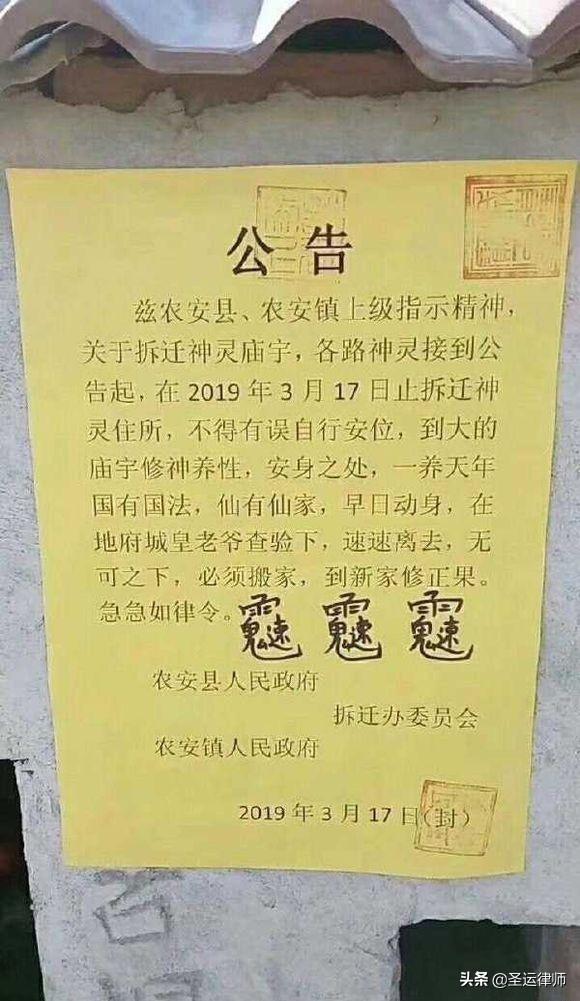 公告
兹农安县、农安镇上级指示精神，
关于拆迁神灵庙宇，各路神灵接到公
告起，在 2019 年 3 月 17 日止拆迁神
灵住所，不得有误自行安位，到大的
庙宇修神养性，安身之处，一养天年
国有国法，仙有仙家，早日动身，在
地府城皇老爷查验下，速速离去，无
可之下，必须搬家，到新家修正果。
急急如律令。
农安县人民政府
拆迁办委员会
农安镇人民政府
2019 年 3 月 17 日（封）
头条 @圣运律师